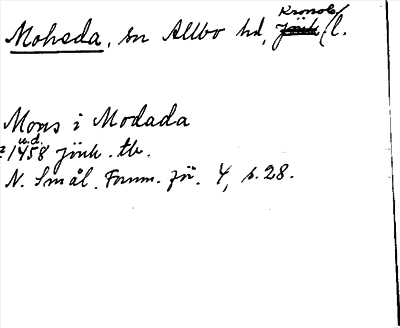 Moheda, sn Allbo hd, Kronob. l.
Mons i Modada
u.d.
1458 Jönk. tb.
N. Smål. Fornm. för. 4, s. 28.